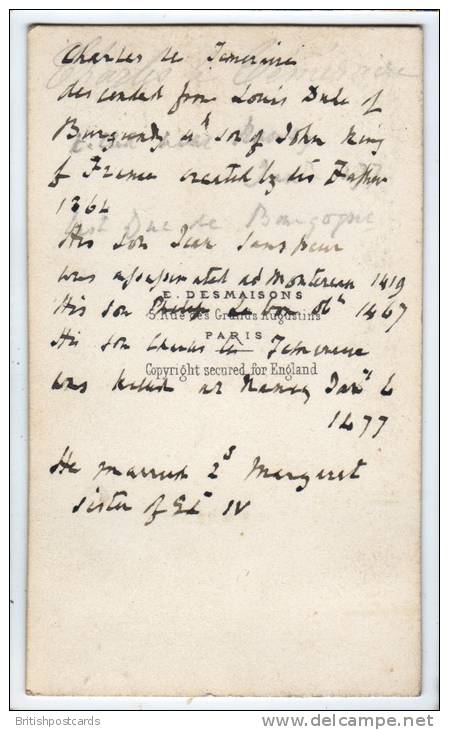 Charles le Temeraire
descended from Louis Duke of
Burgundy 4th son of John King
of France created by his Father
1364
last Duc de Bourgogne
His son Jean sans peur
was assassinated at Montereau 1419
E. DESMAISONS
His son Philip le bon obt 1467
5, Rue des Grands Augustins
PARIS
His son Charles le Temeraire
Copyright secured for England
was killed at Nancy Jany 6
1477
He married 2d Margaret
sister of Ed IV
Britishpostcards
www.delcampe.net